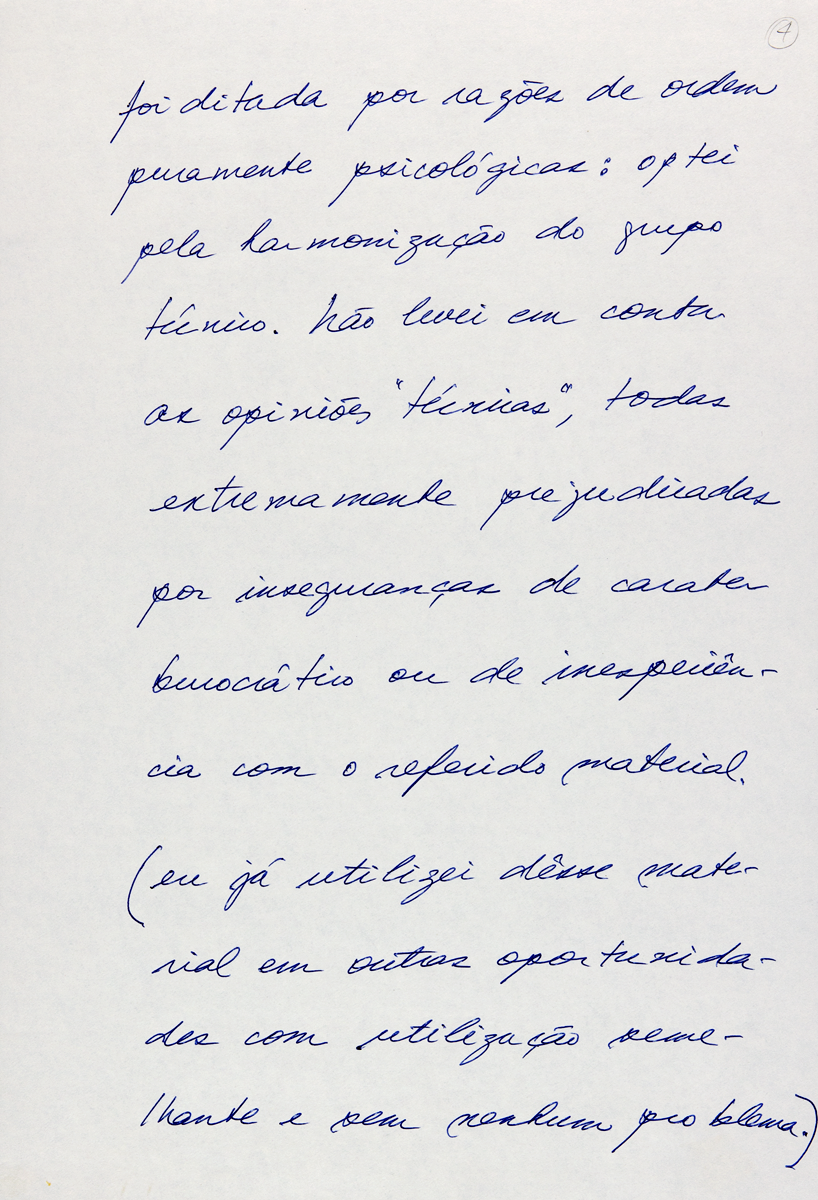 4
foi ditada por razões de ordem
puramente psicológicas: optei
pela harmonização do grupo
técnico. Não levei em conta
as opiniões "técnicas", todas
extremamente prejudicadas
por inseguranças de carater
burocrático ou de inexperiên-
cia com o referido material.
(eu já utilizei dêsse mate-
rial em outras oportunida-
des com utilização seme-
lhante e sem nenhum problema.)